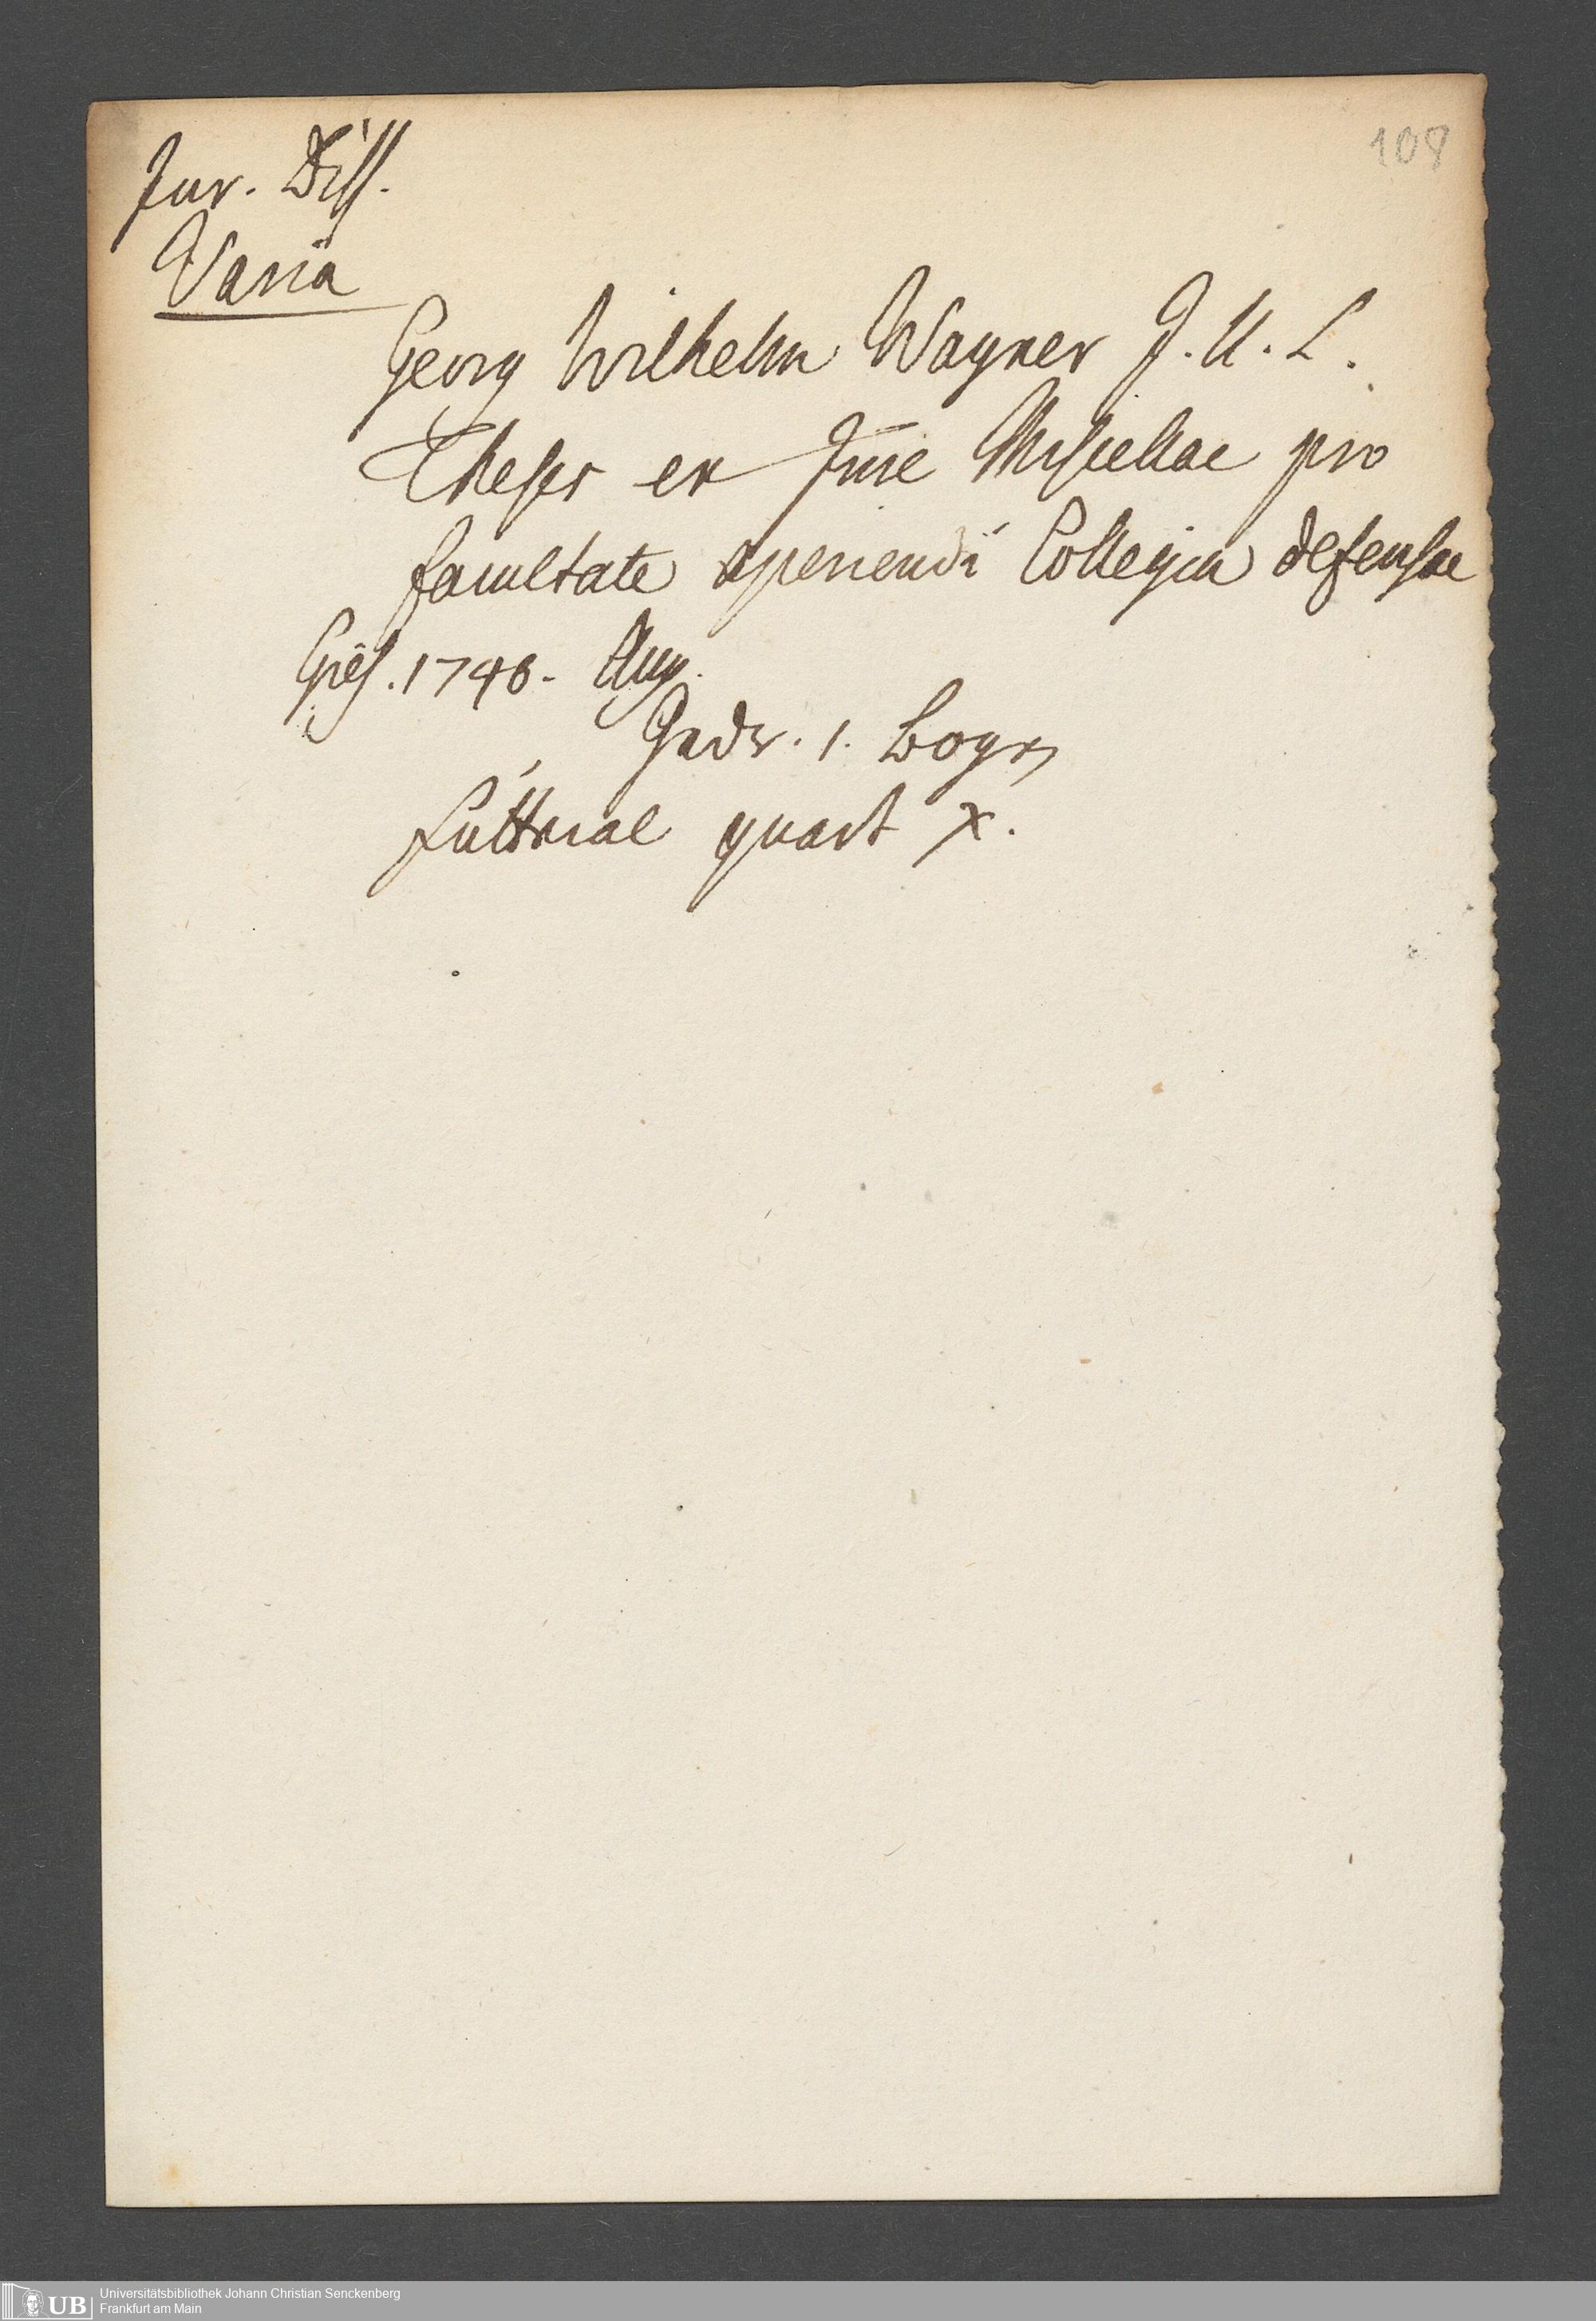 108
Jur. Diss.
Varia
Georg Wilhelm Wagner J. U. L.
Theses ex Jure Miscellae pro
facultate aperiendi Collegia defensae
Gies. 1748. Aug.
1. Bogn
quart X.
UB Universitätsbibliothek Johann Christian Senckenberg
Frankfurt am Main